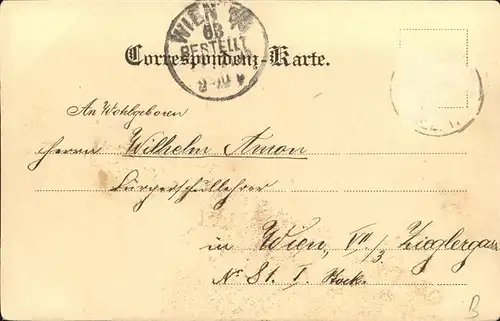 WIEN
63
BESTELLT
Correspondenz-Karte.
An Wohlgeboren
Herrn Wilhelm Amon
Bürgerschullehrer
in Wien, VII/3. Zieglergass
No 81. I. Stock.
B